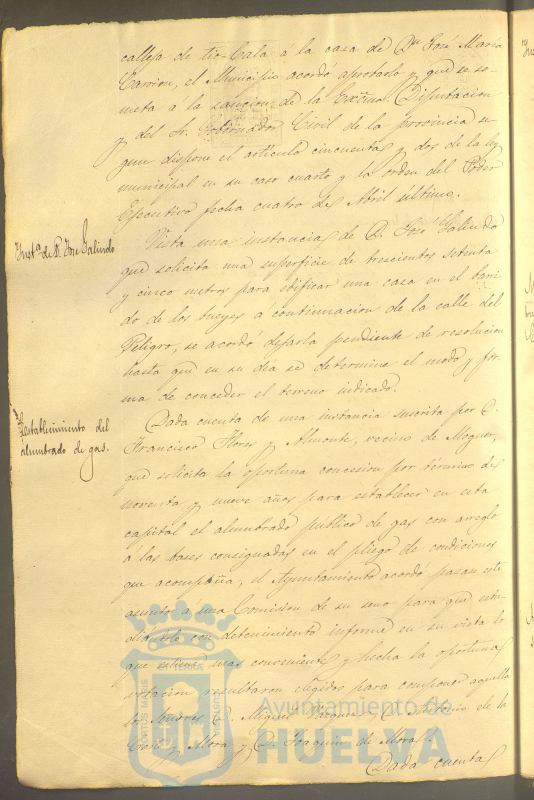 calleja de tio-Cala á la casa de Dn José María
Carrion, el Municipio acordó aprobarlo y que se so-
meta á la sancion de la Exma. Diputacion
y del Sr. Gobernador Civil de la provincia se-
gun dispone el artículo cincuenta y dos de la ley
municipal en su caso cuarto y la orden del Poder
Ejecutivo fecha cuatro de Abril último.
Inst.ª de D. José Galindo
Vista una instancia de D. José Galindo
que solicita una superficie de trescientos setenta
y cinco metros para edificar una casa en el
do de los bueyes á continuacion de la calle del
Peligro, se acordó dejarla pendiente de resolucion
hasta que en su dia se determine el modo y for-
ma de conceder el terreno indicado.
Establecimiento del
alumbrado de gas.
Dada cuenta de una instancia suscrita por D.
Francisco Flores y Almonte, vecino de Moguer,
que solicita la oportuna concesion por término de
noventa y nueve años para establecer en esta
capital el alumbrado público de gas con arreglo
á las bases consignadas en el pliego de condiciones
que acompaña, el Ayuntamiento acordó pasar este
asunto á una Comision de su seno para que estu-
diándole con detenimiento informe en su vista lo
que estime mas conveniente y hecha la oportuna
votacion resultaron elegidos para componer aquella
los Señores D. Miguel D. Antonio de la
Corte y Mora y D. Joaquin de Mora.
Dada cuenta
PORTUS MARIS
ET TERRAE
CUSTODIA
Ayuntamiento de
HUELVA